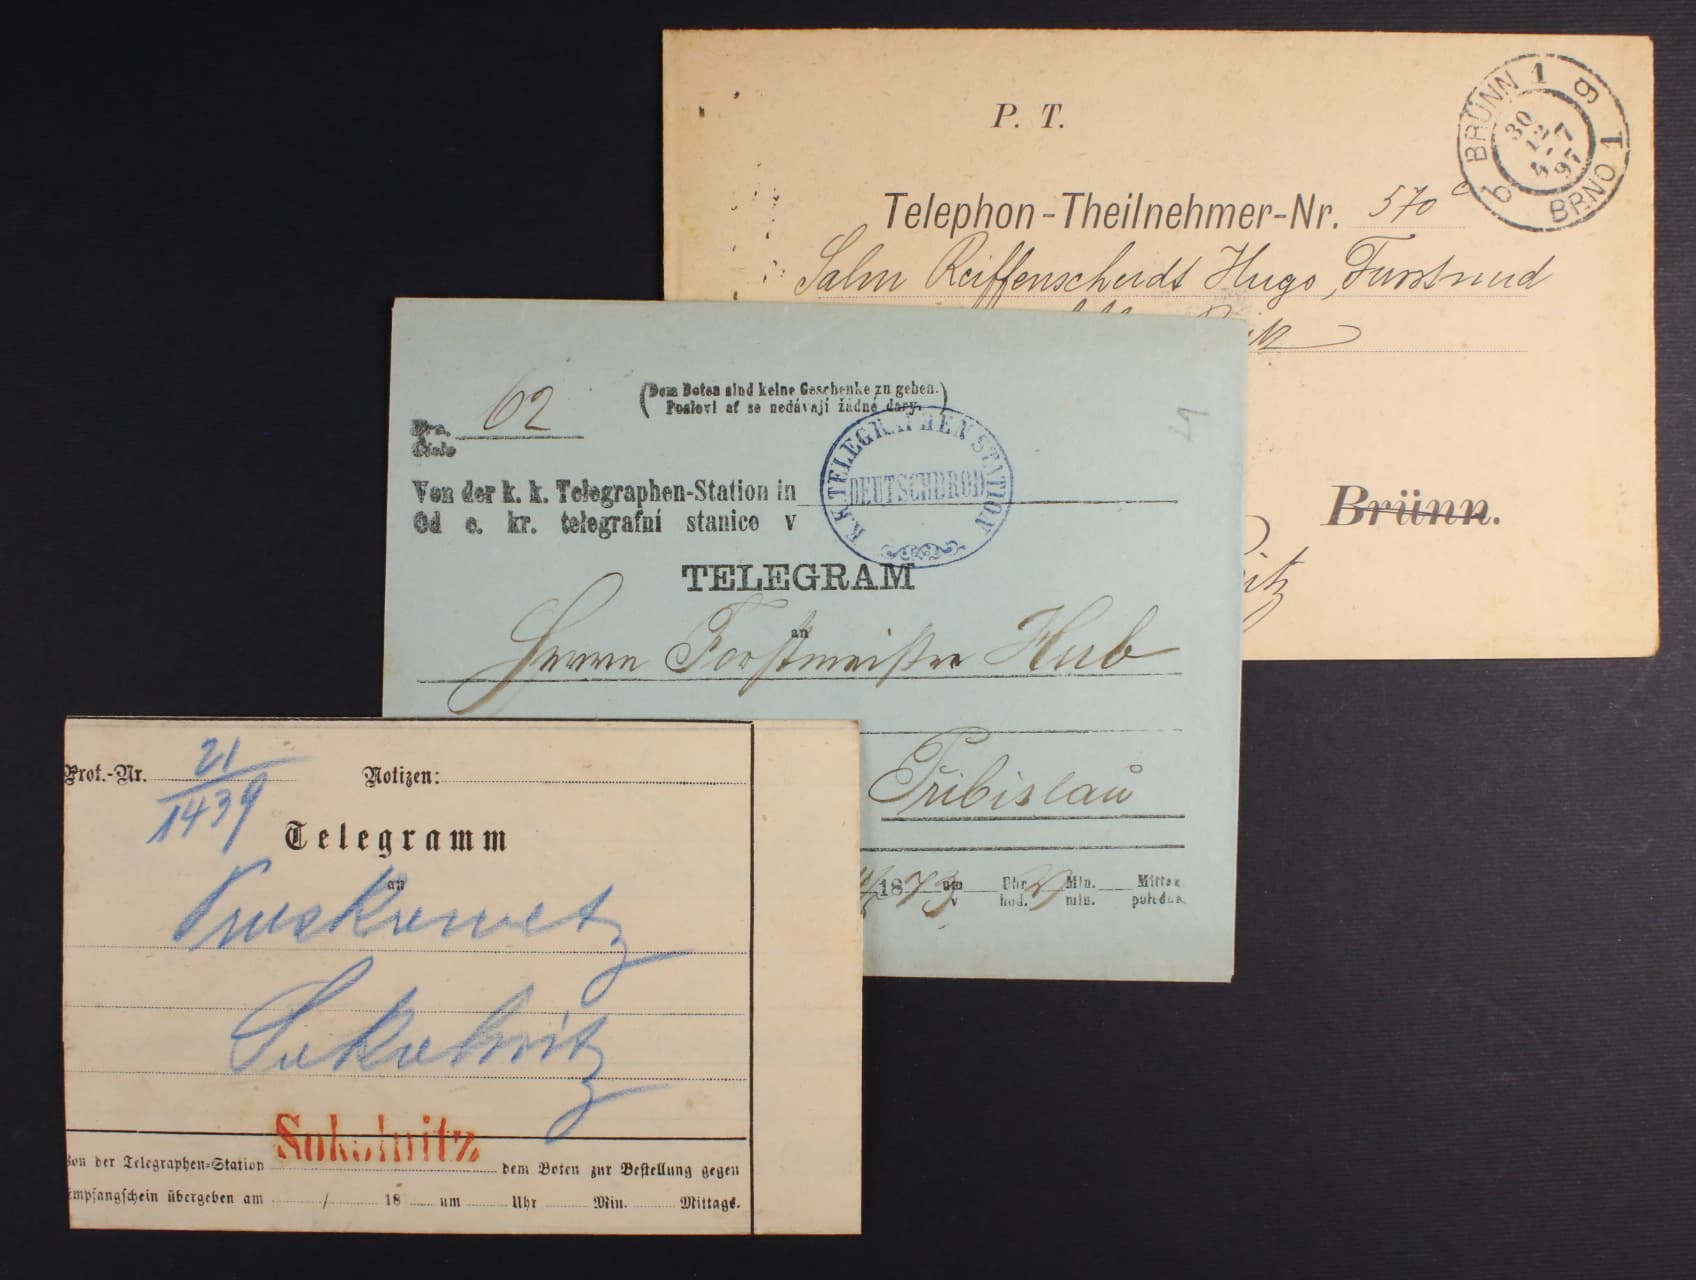 P. T.
Telephon-Theilnehmer-Nr. 570
Salm Reiffenscheidt Hugo, Fürst und
BRÜNN 1
BRNO 1
30
12
4-7
97
b g
Brünn.
Nro. 62
Číslo
(Dem Boten sind keine Geschenke zu geben.
Poslovi ať se nedávají žádné dary.)
Von der k. k. Telegraphen-Station in
Od c. kr. telegrafní stanice v
K.K. TELEGRAPHEN STATION
DEUTSCHBROD
TELEGRAM
an
Herrn Forstmeister Hub
Přibislau
1873 um Uhr Min. Mittag
v hod. min. poledne
Prot.-Nr. 21/1439 Notizen:
Telegramm
an
Sokolnitz
Sokolnitz
Von der Telegraphen-Station dem Boten zur Bestellung gegen
Empfangschein übergeben am / 18 um Uhr Min. Mittags.